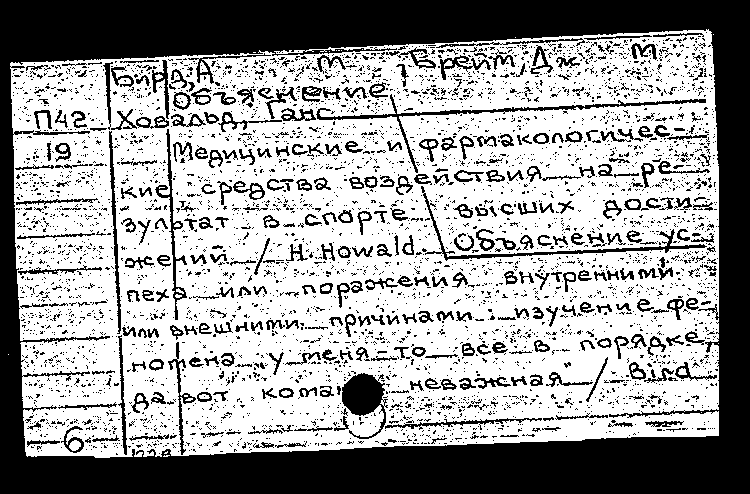 Бирд, А м , Брейт, Дж м
Объяснение
П42 Ховальд, Ганс
19 Медицинские и фармакологичес-
кие средства воздействия на ре-
зультат в спорте высших дости-
жений / H. Howald. Объяснение ус-
пеха или поражения внутренними
или внешними причинами : изучение фе-
номена „у меня-то все в порядке,
да вот кома неважная" / Bird
6